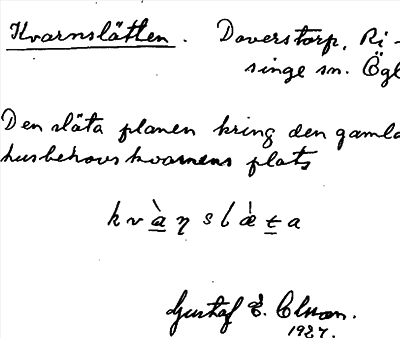 Kvarnslätten. Daverstorp, Ri-
singe sn. Ögl
Den släta planen kring den gamla
husbehovskvarnens plats
kvàṇslǽta
Gustaf E.
1927.